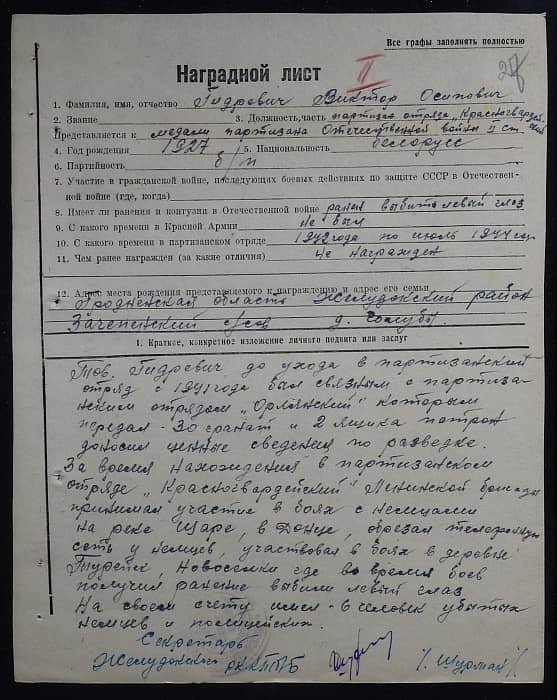 Все графы заполнять полностью
28
Наградной лист
II
1. Фамилия, имя, отчество Гидревич Виктор Осипович
2. Звание 3. Должность, часть партизан отряда „Красногвардей-
Представляется к медали партизана Отечественной войны II ст. ский"
4. Год рождения 1927 5. Национальность белорусс
6. Партийность б/п
7. Участие в гражданской войне, последующих боевых действиях по защите СССР в Отечествен-
ной войне (где, когда)
8. Имеет ли ранения и контузии в Отечественной войне ранен выбит левый глаз
9. С какого времени в Красной Армии не был
10. С какого времени в партизанском отряде 1942 года по июль 1944 год
11. Чем ранее награжден (за какие отличия) не награжден
12. Адрес места рождения представляемого к награждению и адрес его семьи
Гродненская область Желудокский район
Зачепичский с/сов д. Голубы
1. Краткое, конкретное изложение личного подвига или заслуг
Тов. Гидревич до ухода в партизанский
отряд с 1941 года был связным с партиза-
нским отрядом „Орлянский" которым
передал - 30 гранат и 2 ящика патрон
доносил ценные сведения по разведке.
За время нахождения в партизанском
отряде „Красногвардейский" Ленинской бригады
принимал участие в боях с немцами
на реке Щаре, в Донце, обрезал телефонную
сеть у немцев, участвовал в боях в деревне
Турейск, Новоселки где во время боев
получил ранение выбили левый глаз
На своем счету имел - 6 человек убытых
немцев и полицейских.
Секретарь
Желудокского РК КП/б/Б /Шурман/.